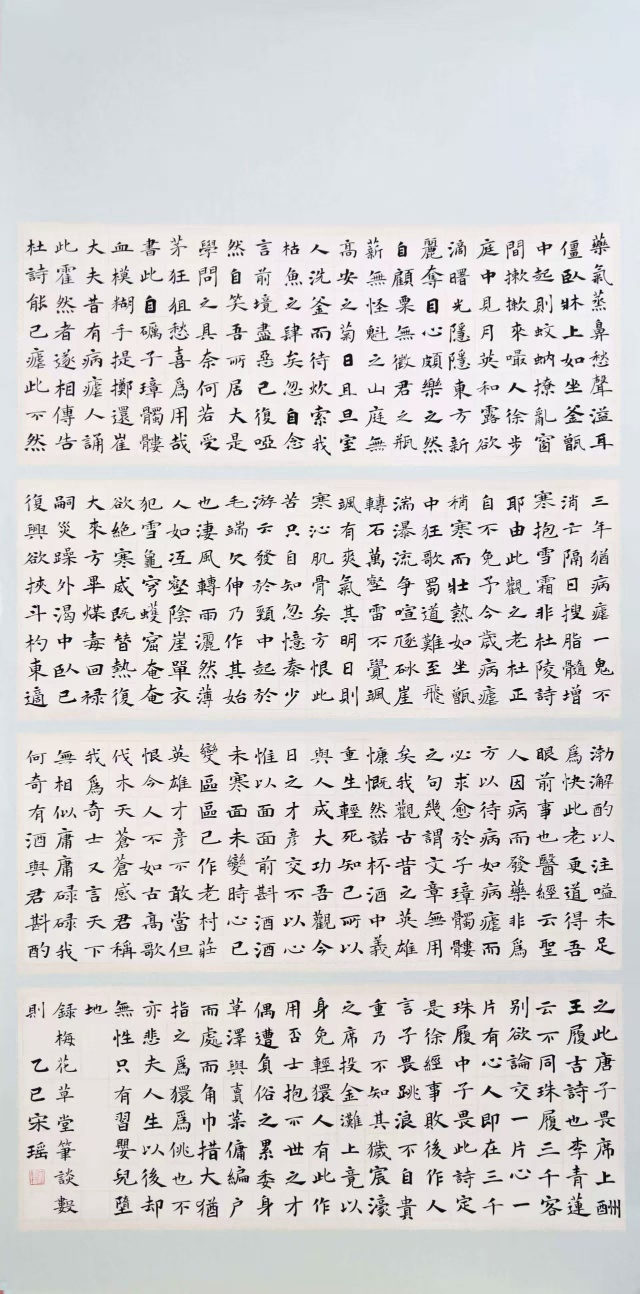 藥氣蒸鼻愁聲溢耳
僵臥牀上如坐釜甑
中起則蚊蚋撩亂窗
間漱漱來嘬人徐步
庭中見月英和露欲
滴曙光隱隱東方新
麗奪目心頗樂之然
自顧粟無徵君之瓶
薪無怪魁之山庭無
高安之菊日且旦室
人洗釜而待炊索我
枯魚之肆矣忽自念
言前境盡惡已復啞
然自笑吾所居大是
學問之具奈何若受
茅狂狙愁喜為用哉
書此自礪子璋髑髏
血模糊手提擲還崔
大夫昔有病瘧人誦
此霍然者遂相傳告
杜詩能已瘧此不然
三年猶病瘧一鬼不
消亡隔日搜脂髓增
寒抱雪霜非杜陵詩
耶由此觀之老杜正
自不免予今歲病瘧
稍寒而壯熱如坐甑
中狂歌蜀道難至飛
湍瀑流爭喧豗砯崖
轉石萬壑雷不覺颯
颯有爽氣其明日則
寒沁肌骨矣方恨此
苦只自知忽憶秦少
游云發於頸中起於
毛端欠伸乃作其始
也淒風轉雨灑然薄
人如冱壑陰崖單衣
犯雪龜穹蠖窟奄奄
欲絕寒威既替熱復
大來方畢煤毒回祿
嗣災躁外渴中臥已
復興欲挾斗杓東適
渤澥酌以注嗌未足
為快此老更道得吾
眼前事也醫經云聖
人因病而發藥非為
方以待病如病瘧而
必求愈於子璋髑髏
之句幾謂文章無用
矣我觀古昔之英雄
慷慨然諾杯酒中義
重生輕死知己所以
與人成大功吾觀今
日之才彥交不以心
惟以面面前斟酒酒
未寒面未變時心已
變區區已作老村莊
英雄才彥不敢當但
恨今人不如古高歌
伐木天蒼蒼感君稱
我為奇士又言天下
無相似庸庸碌碌我
何奇有酒與君斟酌
之此唐子畏席上酬
王履吉詩也李青蓮
云不同珠履三千客
別欲論交一片心一
片有心人即在三千
珠履中子畏此詩定
是徐經事敗後作人
言子畏跳浪不自貴
重乃不知其獩宸濠
之席投金灘上竟以
身免輕獧人有此作
用否士抱不世之才
偶遭負俗之累委身
草澤與賣菜傭編戶
而處而角巾措大猶
指之為獧為佻也不
亦悲夫人生以後却
無性只有習嬰兒墮
地
録梅花草堂筆談數
則 乙巳宋瑤